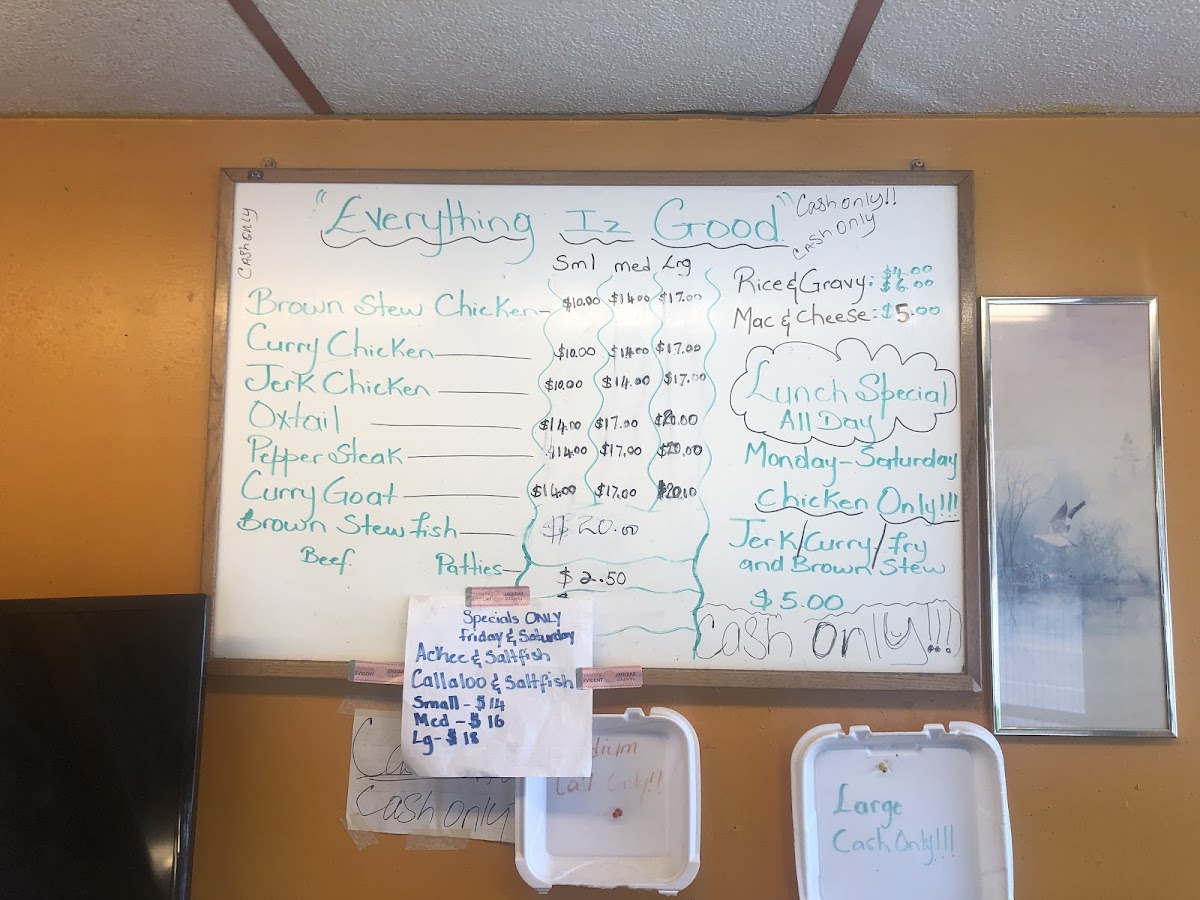 "Everything Iz Good"
Cash only!!
Cash Only
Cash only
Sml med Lrg
Brown Stew Chicken- $10.00 $14.00 $17.00
Curry Chicken $10.00 $14.00 $17.00
Jerk Chicken $10.00 $14.00 $17.00
Oxtail $14.00 $17.00 $20.00
Pepper Steak $14.00 $17.00 $20.00
Curry Goat $14.00 $17.00 $20.00
Brown Stew fish $20.00
Beef Patties $2.50
Rice & Gravy: $4.00
$6.00
Mac & Cheese: $5.00
Lunch Special
All Day
Monday-Saturday
Chicken Only!!!
Jerk/Curry/Fry
and Brown Stew
$5.00
Cash Only!!!
Specials ONLY
Friday & Saturday
Ackee & Saltfish
Callaloo & Saltfish
Small - $14
Med - $16
Lg - $18
Cash only
Cash Only!!
Large
Cash Only!!!